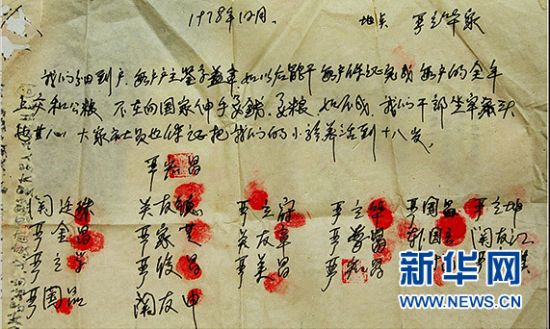 1978年12月。 地点 严立华家
我们分田到户 每户户主签字盖章 如以后能干 每户保证完成每户的全年
上交和公粮 不在向国家伸手要钱要粮 如不成 我们干部坐牢杀头
也甘心 大家社员也保证把我们的小孩养活到十八岁。
严宏昌
关廷珠 关友德 严立富 严立华 严国昌 严立坤
严金昌 严家芝 关友章 严学昌 韩国云 关友江
严立学 严俊昌 严美昌 严宏昌 其
严国品 关友申
新华网
WWW.NEWS.CN